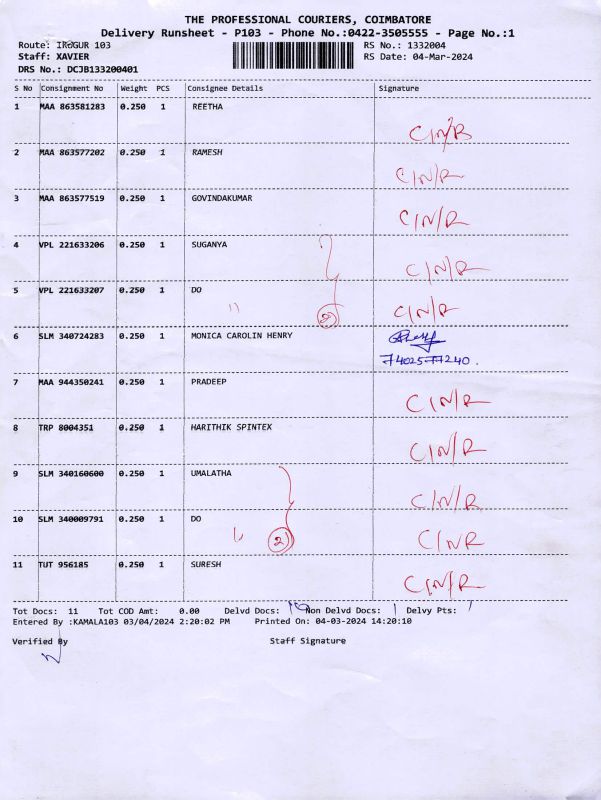 THE PROFESSIONAL COURIERS, COIMBATORE
Delivery Runsheet - P103 - Phone No.:0422-3505555 - Page No.:1
Route: IRUGUR 103 RS No.: 1332004
Staff: XAVIER RS Date: 04-Mar-2024
DRS No.: DCJB133200401
S No Consignment No Weight PCS Consignee Details Signature
1 MAA 863581283 0.250 1 REETHA
C/N/R
2 MAA 863577202 0.250 1 RAMESH
C/N/R
3 MAA 863577519 0.250 1 GOVINDAKUMAR
C/N/R
4 VPL 221633206 0.250 1 SUGANYA
C/N/R
5 VPL 221633207 0.250 1 DO
" 2 C/N/R
6 SLM 340724283 0.250 1 MONICA CAROLIN HENRY
7402577240.
7 MAA 944350241 0.250 1 PRADEEP
C/N/R
8 TRP 8004351 0.250 1 HARITHIK SPINTEX
C/N/R
9 SLM 340160600 0.250 1 UMALATHA
C/N/R
10 SLM 340009791 0.250 1 DO
" 2 C/N/R
11 TUT 956185 0.250 1 SURESH
C/N/R
Tot Docs: 11 Tot COD Amt: 0.00 Delvd Docs: 10 Non Delvd Docs: 1 Delvy Pts:
Entered By :KAMALA103 03/04/2024 2:20:02 PM Printed On: 04-03-2024 14:20:10
Verified By Staff Signature